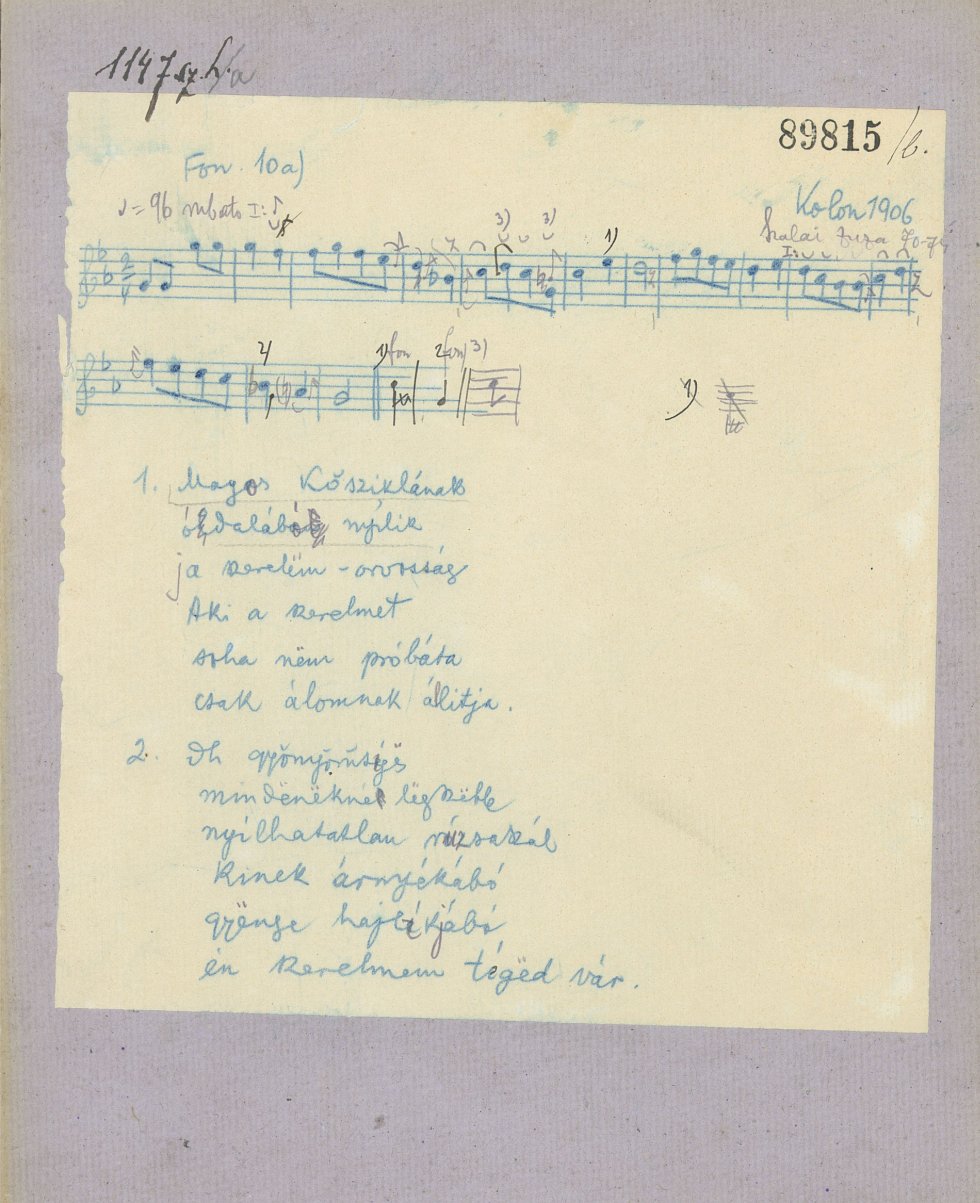 1147 sz. h./a
89815 /b.
Fon. 10a)
♩= 96 rubato I:
Kolon 1906
Szalai Zuza 70-74
3) 3)
1)
I:
2) 1) fon 2 fon) 3)
1)
1. Magos Kősziklának
nyílik
ja szerelëm - orvosság
Aki a szerelmet
soha nëm próbáta
csak álomnak állitja.
2. Oh gyönyörűsígës
mindënëknél lëgszëbb
nyílhatatlan rúzsaszál
Kinek árnyékábó
gyënge hajlíkjábó
én szerelmem tégëd vár.